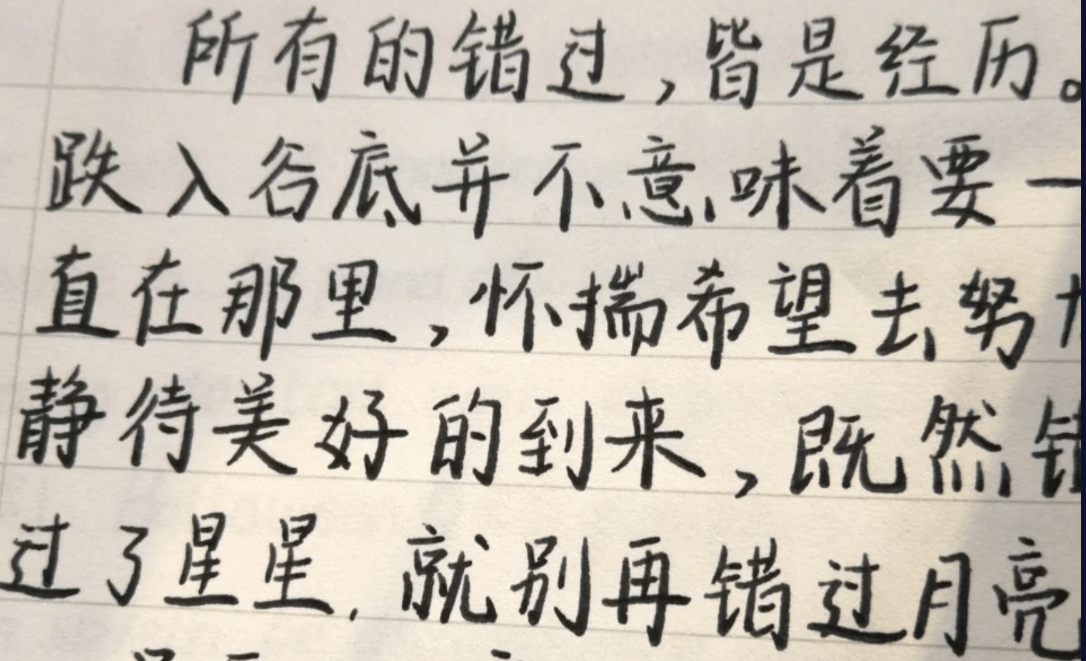 所有的错过,皆是经历。
跌入谷底并不意味着要一
直在那里,怀揣希望去努
静待美好的到来,既然错
过了星星,就别再错过月亮